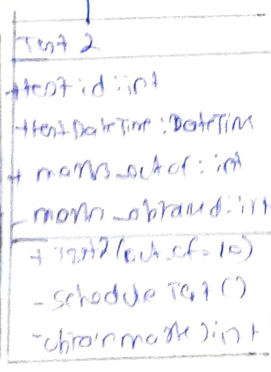 Test 2
+test id : int
+test DateTime : DateTime
+ marks_out of : int
- marks_obtained : int
+ Test2(out_of=10)
- schedule Test ()
- obtain marks ) : int